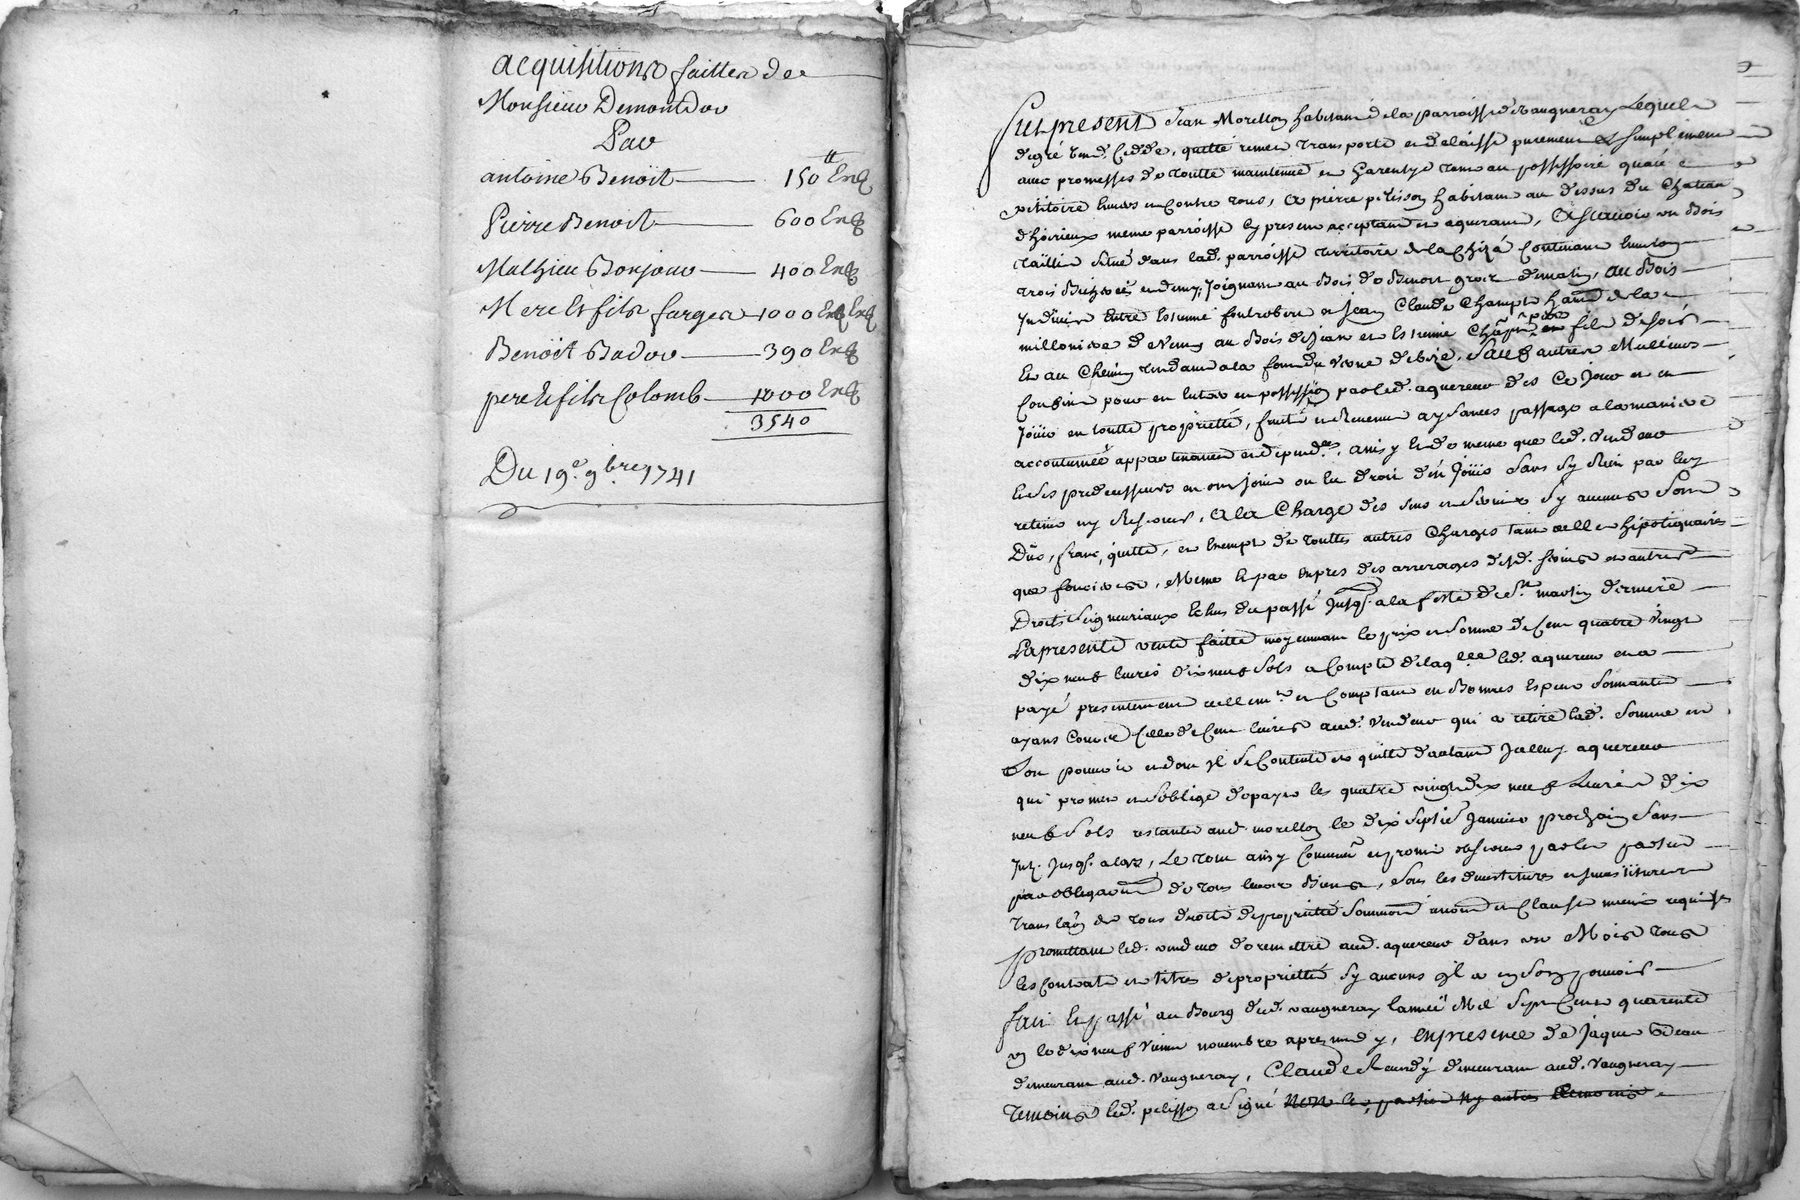 acquisitions faittes de
Monsieur Demontdor
Par
antoine Benoit 150 tt
Pierre Benoit 600
Mathieu Bonjour 400
Mere et fils farges 1000
Benoit Badou 390
pere et fils Colomb 1000
3540
Du 19e. 9bre 1741
fut present Jean Morellon habitant de la parroisse de vaugneray Lequel
de gré vend, Cedde, quitte remet transporte et delaisse purement et simplement
avec promesses de toutte maintenue et garentye tant au possessoire que
petitoire envers et Contre tous, a pierre pelisson habitant au dessus du Chateau
meme parroisse icy present acceptant et aquerant, Ascavoir un Bois
taillis situé dans lad. parroisse territoire de la Contenant environ
trois Bicherées et demy, Joignant au Bois de Benoit de matin, au Bois
Indivis entre Estienne et Jean Claude
de au Bois de Jean et Estienne fils de soir
Et au Chemin tendant a la de bize, sauf autres Meilleurs
Confins pour en entrer en possession par led. aquereur des Ce Jour et en
Jouir en toutte proprietté, fruits et Revenus aysances passage a la maniere
accoutumée appartenances et dépend.ces, ainsy et de meme que led. vendeur
et ses predecesseurs en ont joui ou eu droit d'en Jouir sans sy Rien par luy
retenir ny Reserver, A la Charge des Cens et Servis sy aucuns sont
Dus, franc, quitte, et Exempt de touttes autres Charges tant qu'hipotequaires
que foncieres, Meme Et par Exprès des arrerages desd. servis et autres
Droits seigneuriaux Echus du passé Jusq. a la feste de St. martin derniere
La presente vente faitte moyennant le prix et somme de Cent quatre vingt
dix neuf livres dix neuf sols a Compte de laq.lle led. aquereur en a
payé presentement reellem.t et Comptant en Bonnes Especes sonnantes
ayans Cours Celle de Cent livres aud. vendeur qui a retiré lad. somme en
son pouvoir et dont il se Contente et quitte d'autant Icelluy aquereur
qui promet et s'oblige de payer les quatre vingt dix neuf Livres dix
neuf sols restantes aud. morellon le dix sept Janvier prochain sans
Jusq. alors, Le tout ainsy Convenu et promis observer par les parties
par obligation de tous leurs Biens, sous les devestitures et Investitures
translation de tous droits de proprietté et Clauses requises
Promettant led. vendeur de remettre aud. aquereur dans un Mois tous
les Contrats et titres de proprietté sy aucuns il a en son pouvoir
fait Et passé au Bourg dud. vaugneray l'année Mil sept Cent quarante
un le dix neuf vieme novembre apres midy, En presence de Jaques
demeurant aud. vaugneray, Claude demeurant aud. vaugneray
temoins led. pelisson a signé non les parties ny autres temoins